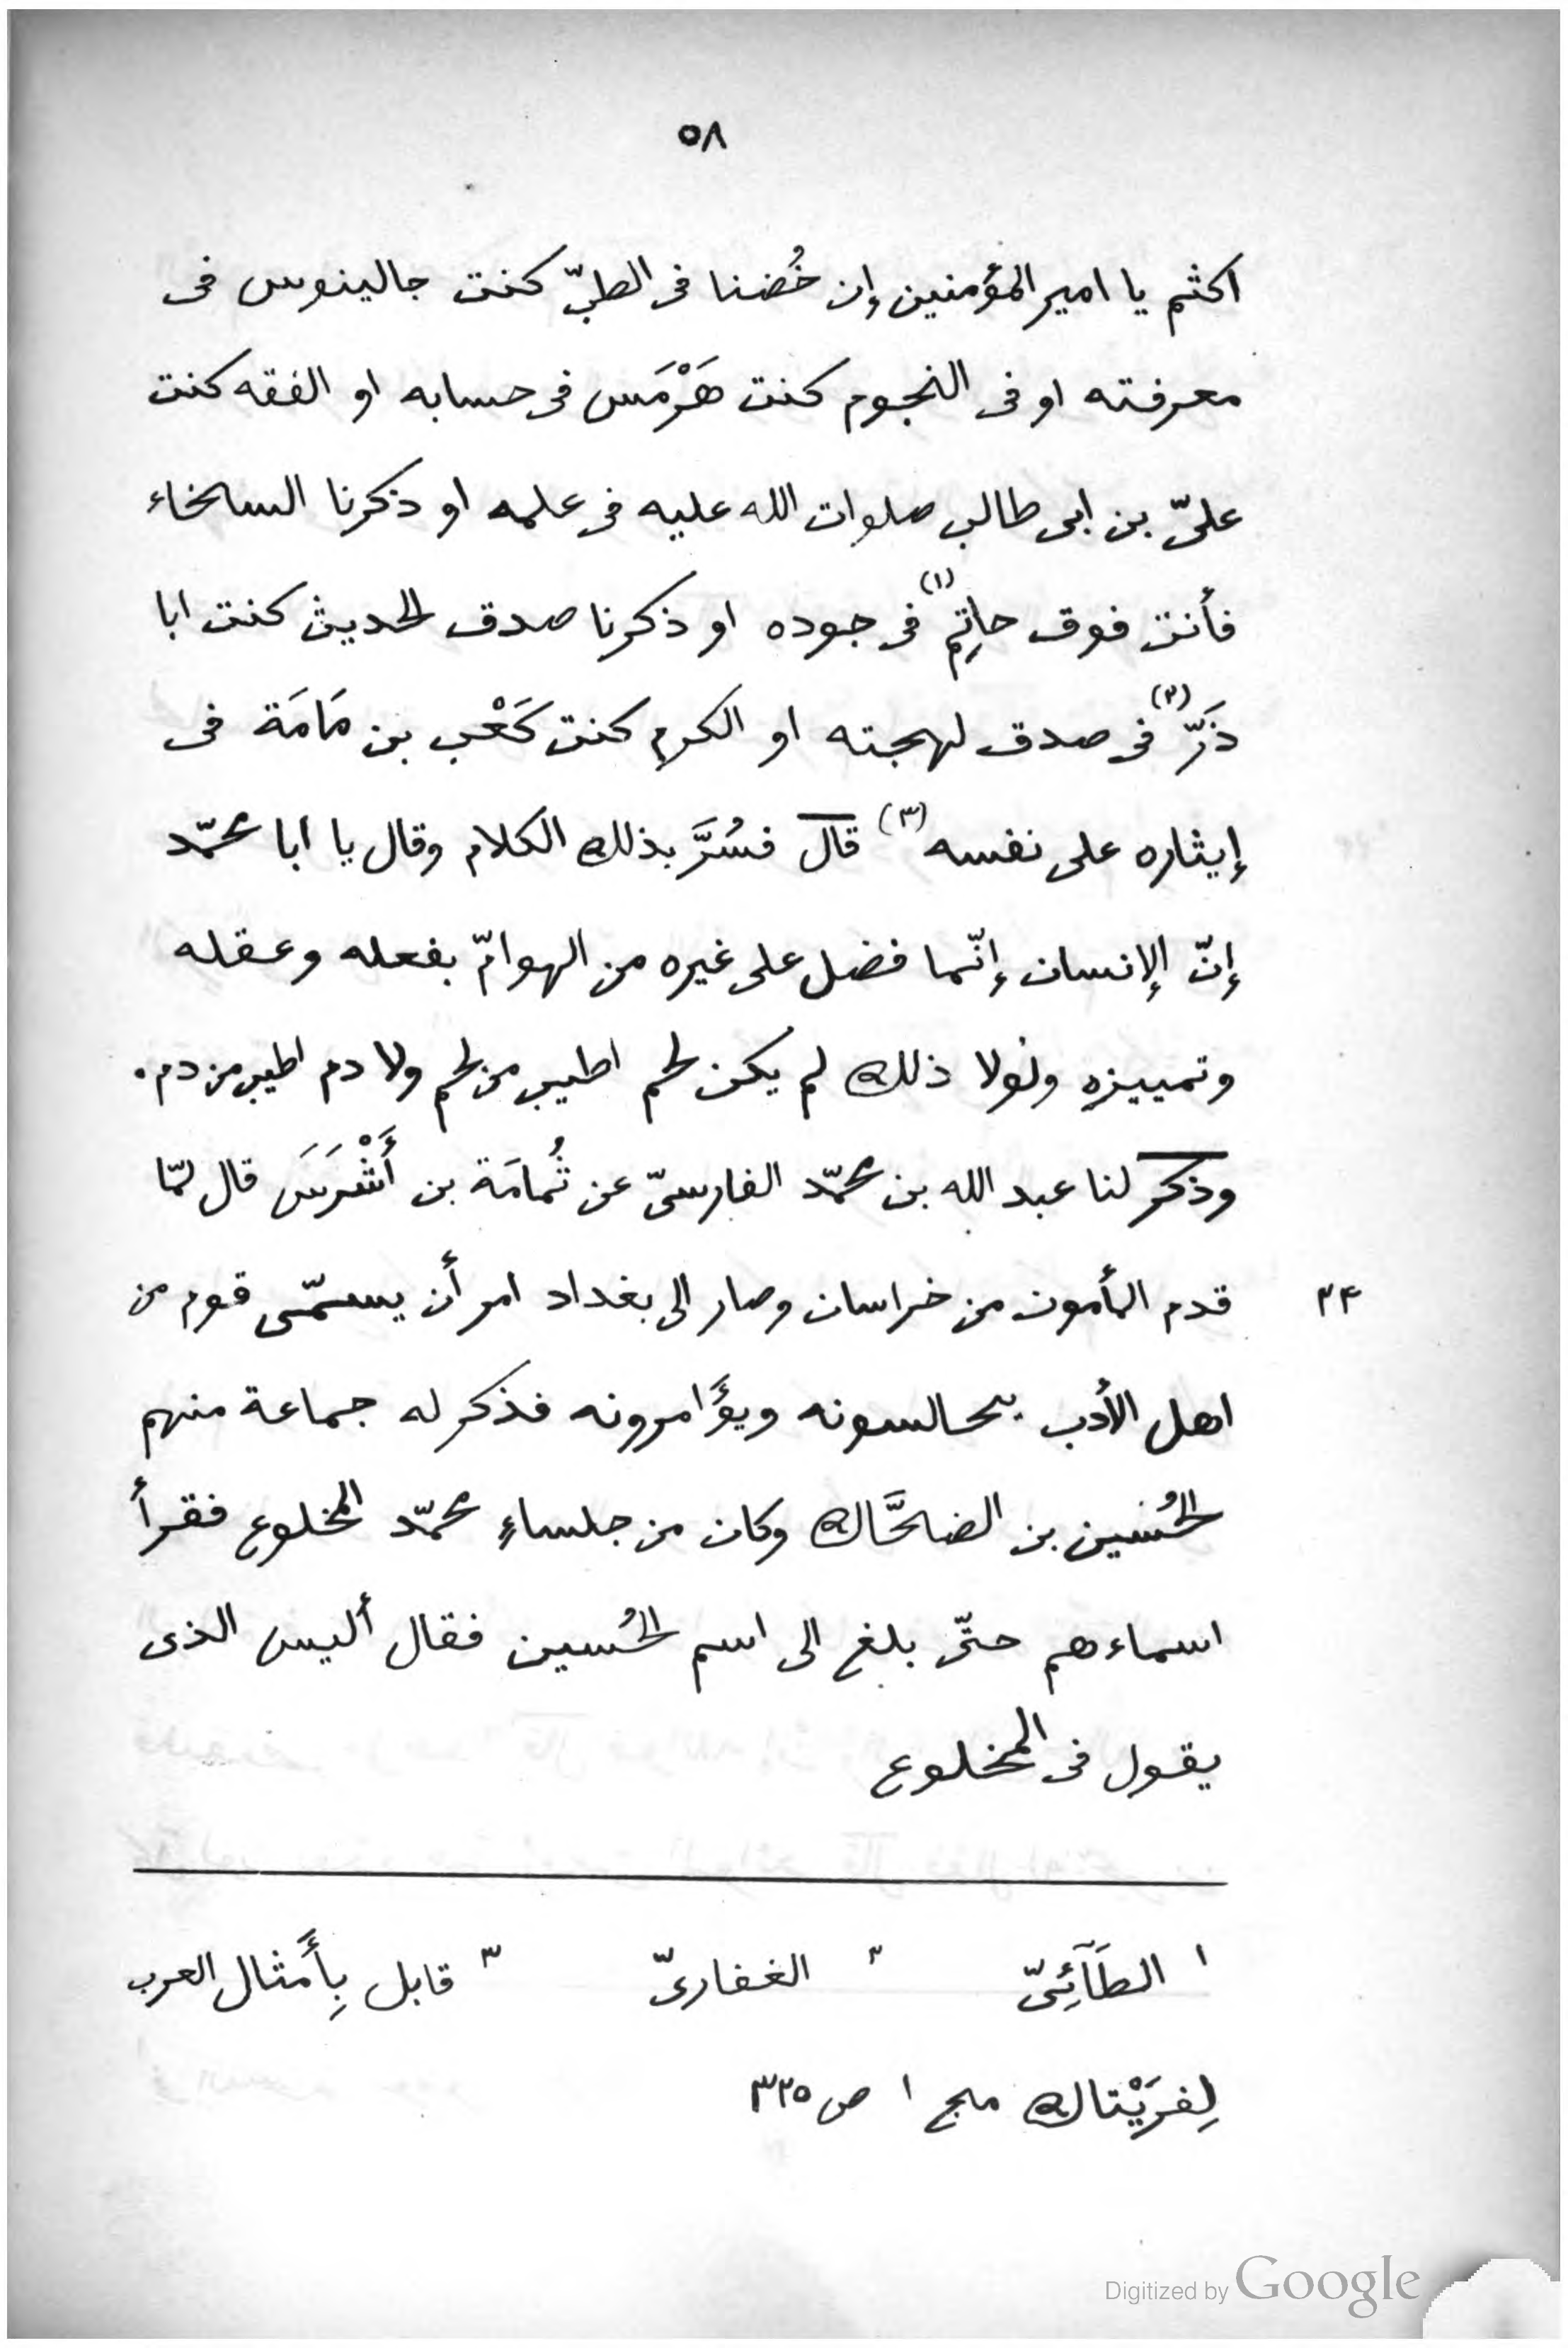 ٥٨
اكثم يا امير المؤمنين إن خُضنا فى الطبّ كنت جالينوس فى
معرفته او فى النجوم كنت هَرْمَس فى حسابه او الفقه كنت
علىّ بن ابى طالب صلوات الله عليه فى علمه او ذكرنا السخاء
فأنت فوق حاتِم (١) فى جوده او ذكرنا صدق الحديث كنت ابا
ذَرّ (٢) فى صدق لهجته او الكرم كنت كَعْب بن مَامَة فى
إيثاره على نفسه (٣) قال فسُرَّ بذلك الكلام وقال يا ابا محمّد
إنّ الإنسان إنّما فضل على غيره من الهوامّ بفعله وعقله
وتمييزه ولولا ذلك لم يكن لحم اطيب من لحم ولا دم اطيب من دم.
وذكر لنا عبد الله بن محمّد الفارسىّ عن ثُمامَة بن أَشْرَسَ قال لمّا
قدم المأمون من خراسان وصار الى بغداد امر أن يسمّى قوم من ٢٤
اهل الأدب يجالسونه ويؤَامرونه فذكر له جماعة منهم
الحُسين بن الضحَّاك وكان من جلساءِ محمّد المخلوع فقرأ
اسماءهم حتّى بلغ الى اسم الحُسين فقال أليس الذى
يقول فى المخلوع
١ الطَآئِىّ ٢ الغفارىّ ٣ قابل بِأَمثال العرب
لِفرَيْتاك مج ١ ص ٣٢٥
Digitized by Google